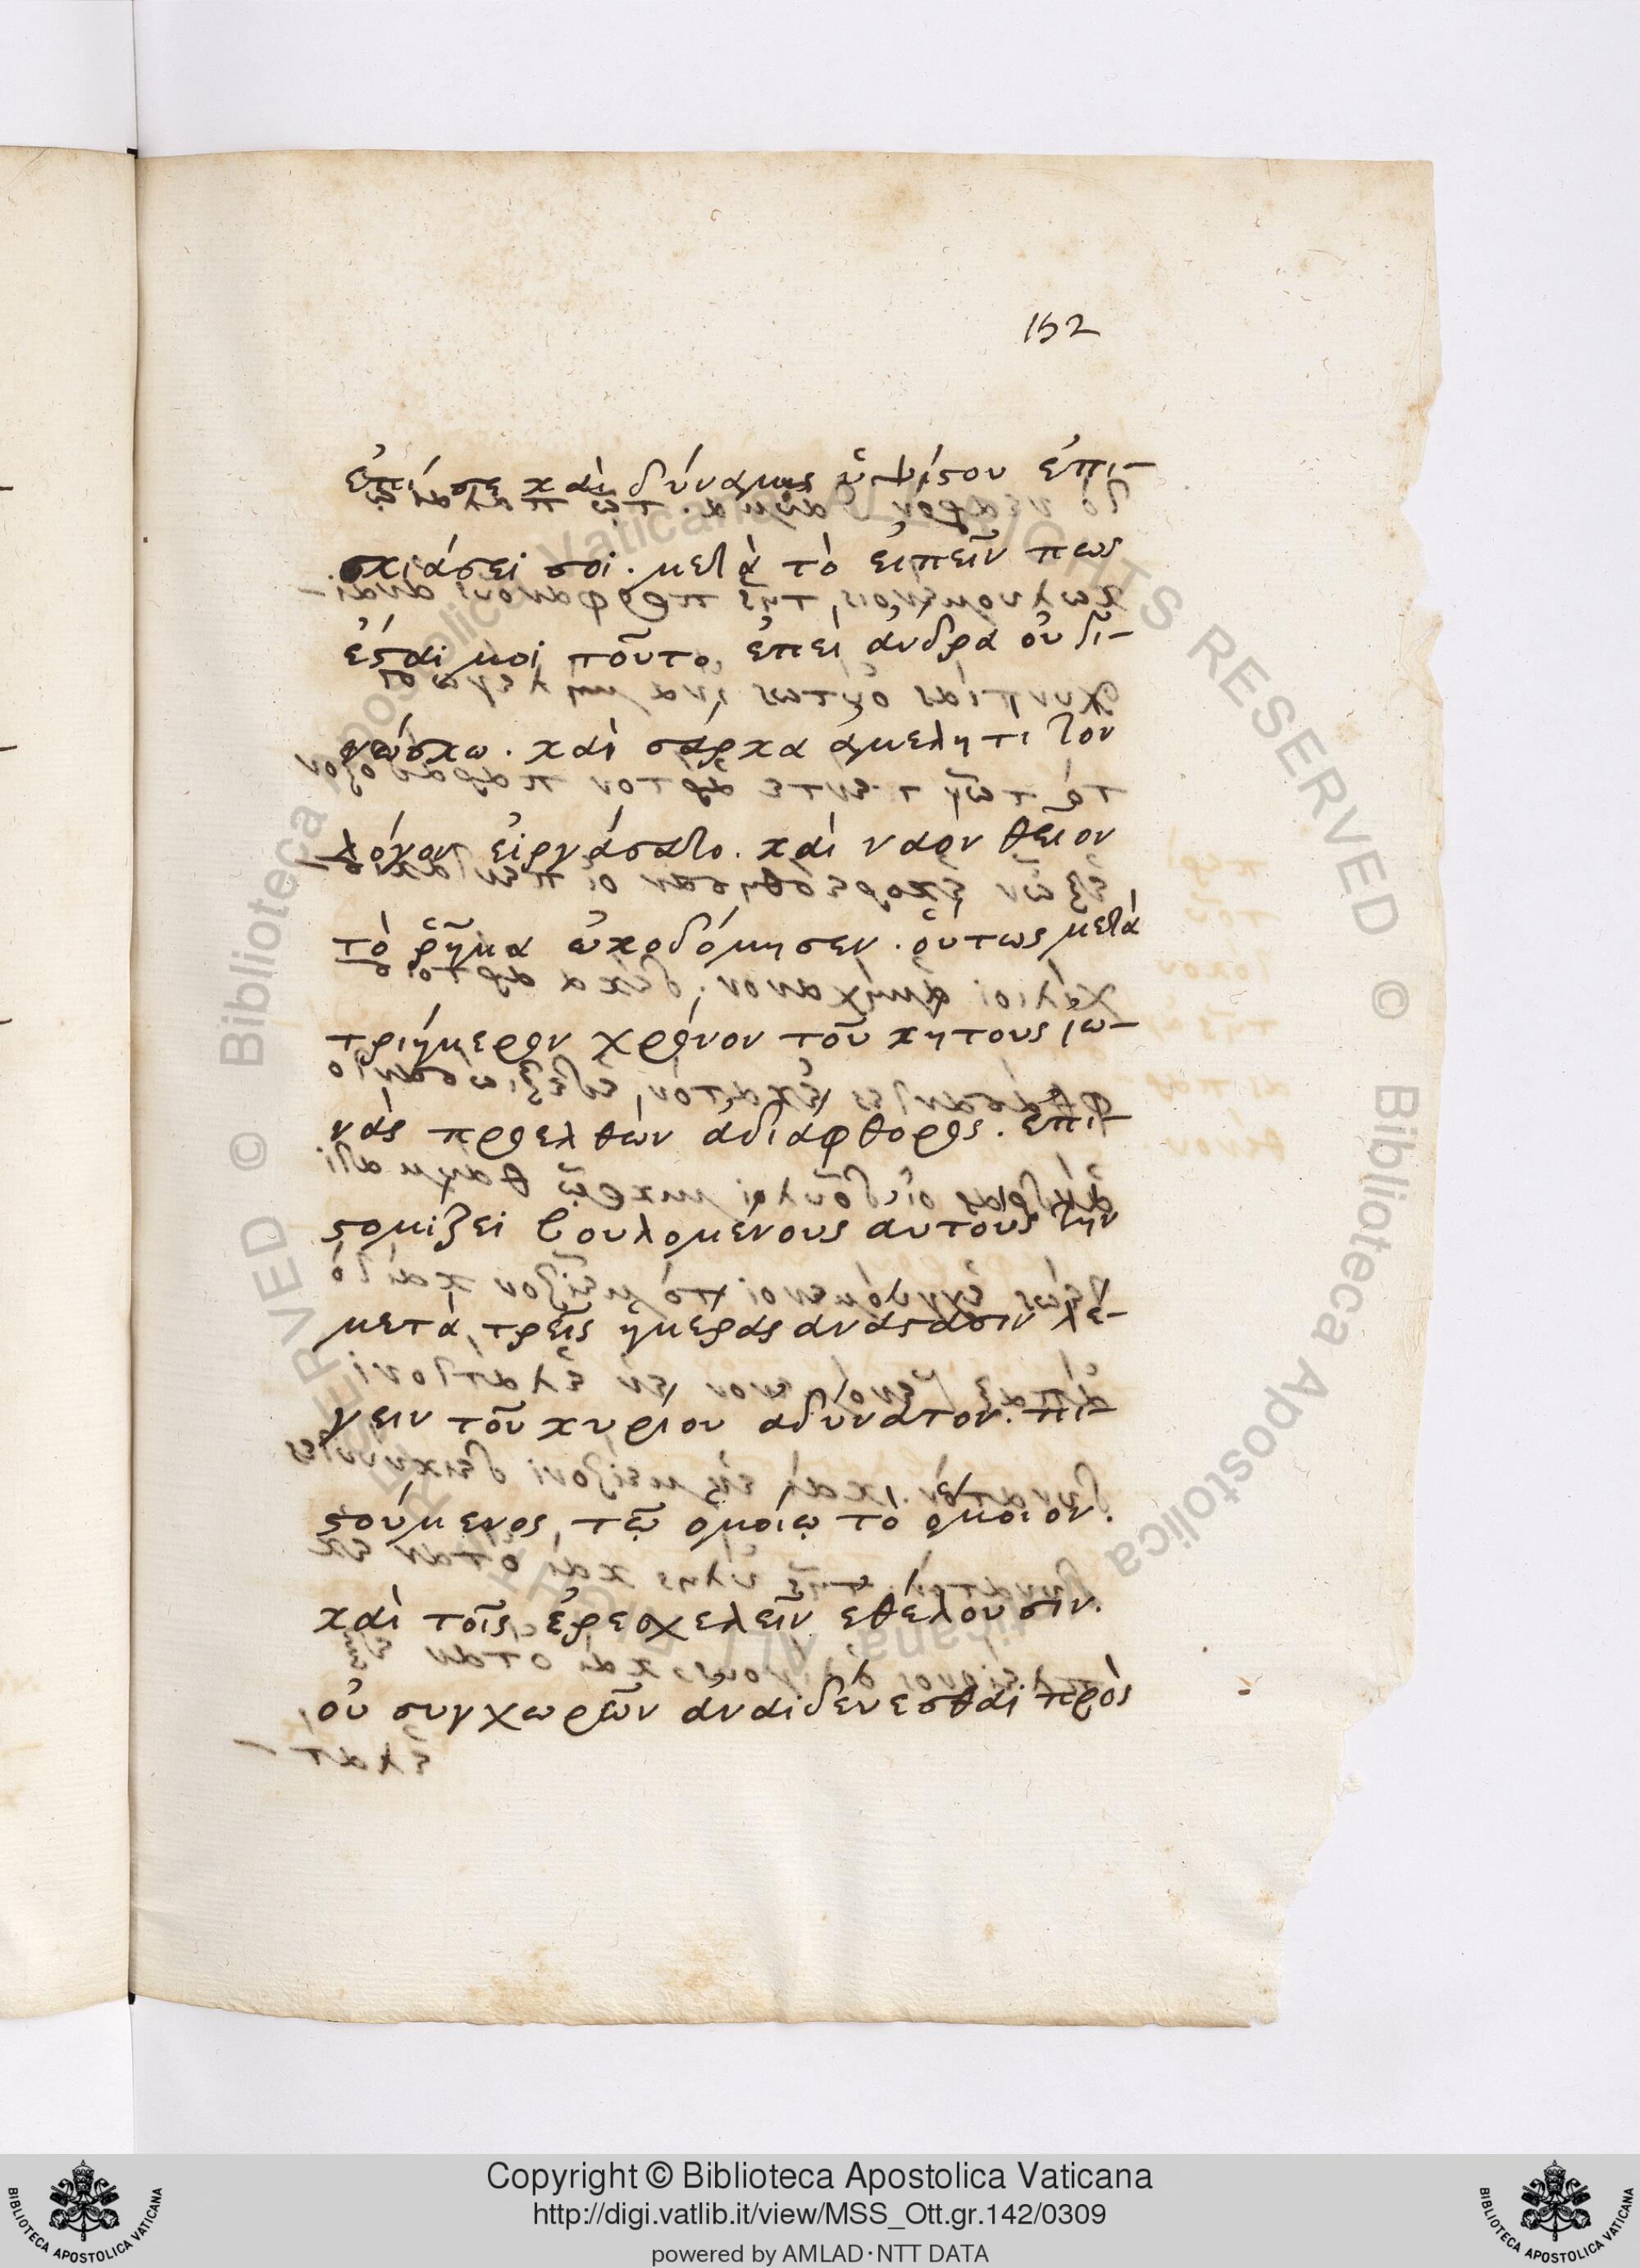 152
ἐπί σε καὶ δύναμις ὑψίστου ἐπι-
σκιάσει σοι. μετὰ τὸ εἰπεῖν πως
ἔσται μοι τοῦτο ἐπεὶ ἄνδρα οὐ γι-
νώσκω. καὶ σάρκα ἀμελητι τὸν
λόγον εἰργάσατο. καὶ ναὸν θεῖον
τὸ ῥῆμα ὠκοδόμησεν. οὕτως μετὰ
τριήμερον χρόνον τοῦ κητους ἰω-
νάς προελθὼν ἀδιάφθορος. ἐπι-
στομίζει βουλομένους αυτους τὴν
μετὰ τρεῖς ημεράς ανάστασιν λέ-
γειν τοῦ κυρίου αδυνατον. πι-
στούμενος τῶ ομοίω τὸ ὅμοιον.
καὶ τοῖς ἐρεσχελεῖν εθέλουσιν.
οὐ συγχωρῶν ἀναιδεύεσθαι πρὸς
Copyright © Biblioteca Apostolica Vaticana
http://digi.vatlib.it/view/MSS_Ott.gr.142/0309
powered by AMLAD·NTT DATA
BIBLIOTECA APOSTOLICA VATICANA
BIBLIOTECA APOSTOLICA VATICANA